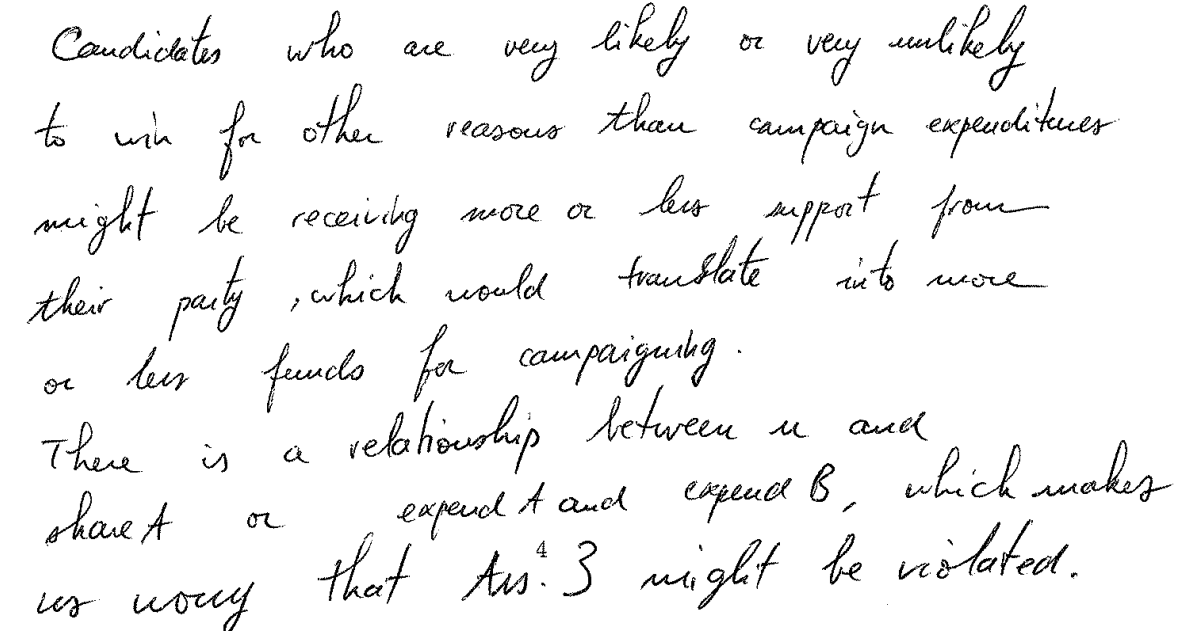 Candidates who are very likely or very unlikely
to win for other reasons than campaign expenditures
might be receiving more or less support from
their party, which would translate into more
or less funds for campaigning.
There is a relationship between u and
share A or expend A and expend B, which makes
us worry that Ass. 3 might be violated.
4